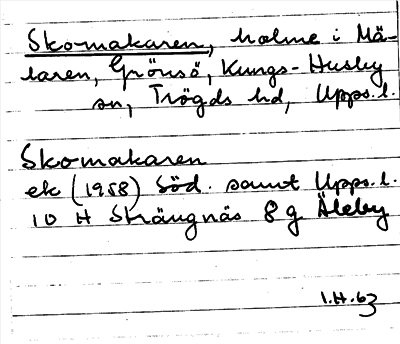 Skomakaren, holme i Mä-
laren, Grönsö, Kungs-Husby
sn, Trögds hd, Upps. l.
Skomakaren
ek (1958) Söd. samt Upps. l.
10 H Strängnäs 8 g Åleby
1.H.63